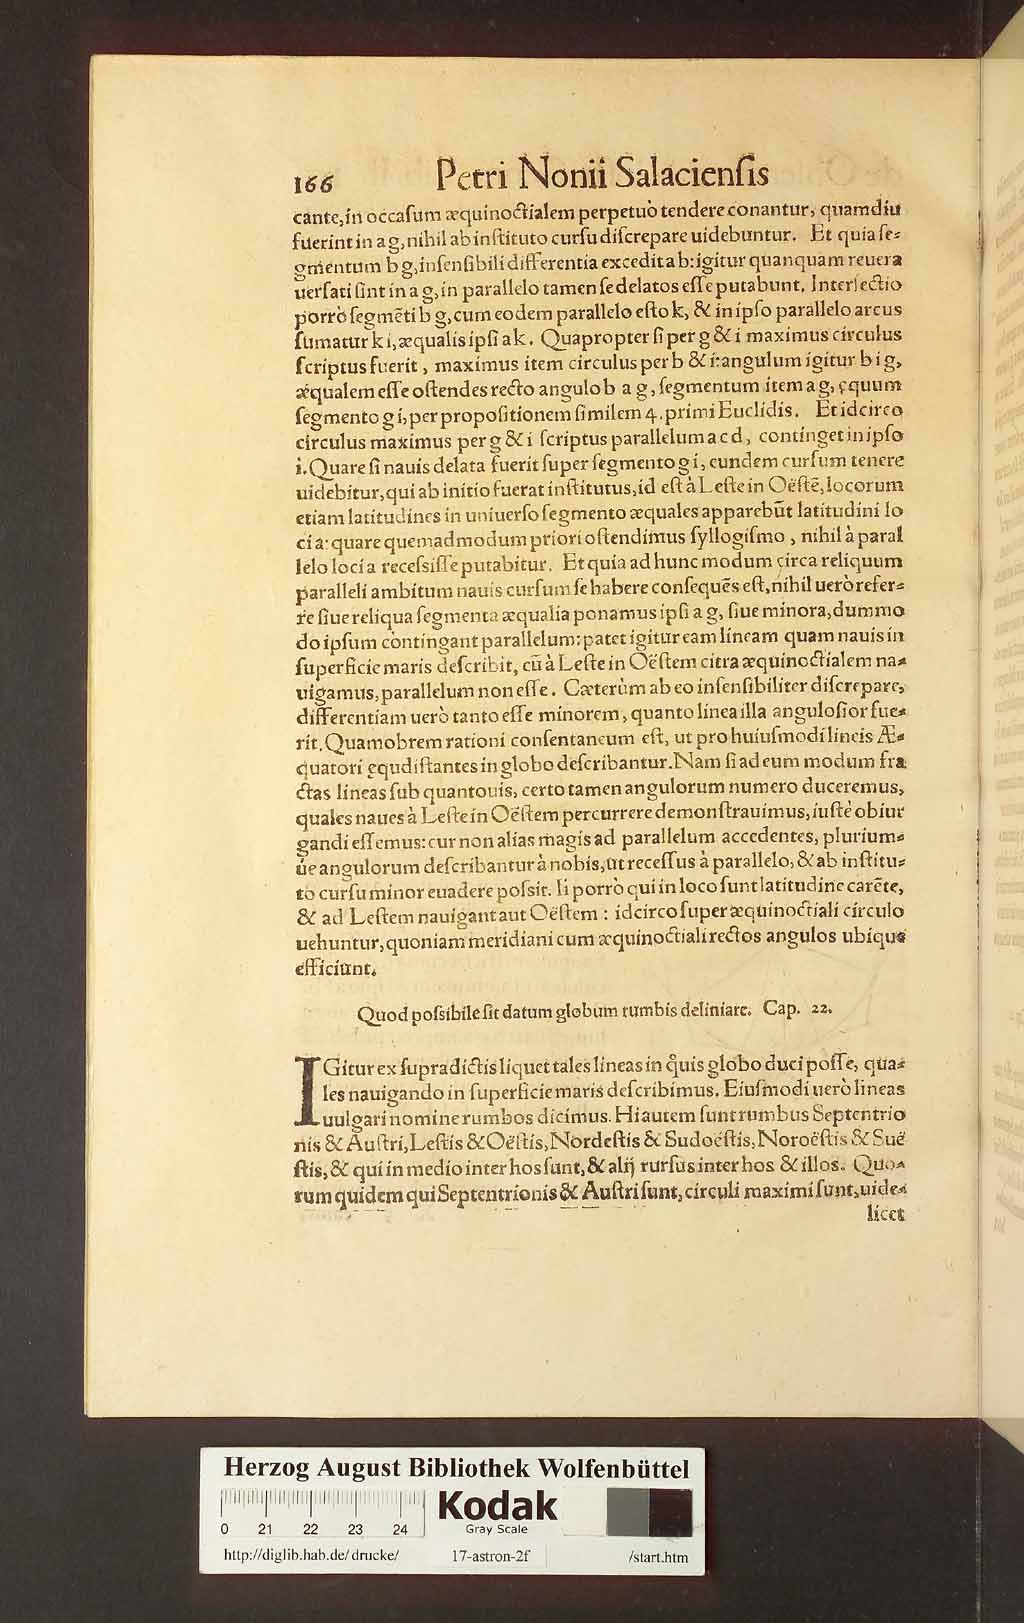 166 Petri Nonii Salaciensis
cante, in occasum æquinoctialem perpetuò tendere conantur, quamdiu
fuerint in a g, nihil ab instituto cursu discrepare uidebuntur. Et quia se-
gmentum b g, insensibili differentia excedit a b: igitur quanquam reuera
uersati sint in a g, in parallelo tamen se delatos esse putabunt. Intersectio
porrò segmẽti b g, cum eodem parallelo esto k, & in ipso parallelo arcus
sumatur k i, æqualis ipsi a k. Quapropter si per g & i maximus circulus
scriptus fuerit, maximus item circulus per b & i: angulum igitur b i g,
æqualem esse ostendes recto angulo b a g, segmentum item a g, ęquum
segmento g i, per propositionem similem 4. primi Euclidis. Et idcirco
circulus maximus per g & i scriptus parallelum a c d, continget in ipso
i. Quare si nauis delata fuerit super segmento g i, eundem cursum tenere
uidebitur, qui ab initio fuerat institutus, id est à Leste in Oëstẽ, locorum
etiam latitudines in uniuerso segmento æquales apparebũt latitudini lo
ci a: quare quemadmodum priori ostendimus syllogismo, nihil à paral
lelo loci a recessisse putabitur. Et quia ad hunc modum circa reliquum
paralleli ambitum nauis cursum se habere consequẽs est, nihil uerò refer-
re siue reliqua segmenta æqualia ponamus ipsi a g, siue minora, dummo
do ipsum contingant parallelum: patet igitur eam lineam quam nauis in
superficie maris describit, cũ à Leste in Oëstem citra æquinoctialem na-
uigamus, parallelum non esse. Cæterùm ab eo insensibiliter discrepare,
differentiam uerò tanto esse minorem, quanto linea illa angulosior fue-
rit. Quamobrem rationi consentaneum est, ut pro huiusmodi lineis Æ-
quatori ęqudistantes in globo describantur. Nam si ad eum modum fra
ctas lineas sub quantouis, certo tamen angulorum numero duceremus,
quales naues à Leste in Oëstem percurrere demonstrauimus, iustè obiur
gandi essemus: cur non alias magis ad parallelum accedentes, plurium-
úe angulorum describantur à nobis, ut recessus à parallelo, & ab institu-
to cursu minor euadere possit. Ii porrò qui in loco sunt latitudine carẽte,
& ad Lestem nauigant aut Oëstem: idcirco super æquinoctiali circulo
uehuntur, quoniam meridiani cum æquinoctiali rectos angulos ubique
efficiunt.
Quod possibile sit datum globum rumbis deliniare. Cap. 22.
IGitur ex supradictis liquet tales lineas in q̃uis globo duci posse, qua-
les nauigando in superficie maris describimus. Eiusmodi uerò lineas
uulgari nomine rumbos dicimus. Hi autem sunt rumbus Septentrio
nis & Austri, Lestis & Oëstis, Nordestis & Sudoëstis, Noroëstis & Suë
stis, & qui in medio inter hos sunt, & alij rursus inter hos & illos. Quo-
rum quidem qui Septentrionis & Austri sunt, circuli maximi sunt, uide-
licet
Herzog August Bibliothek Wolfenbüttel
Kodak
Gray Scale
0 21 22 23 24
http://diglib.hab.de/drucke/ 17-astron-2f /start.htm